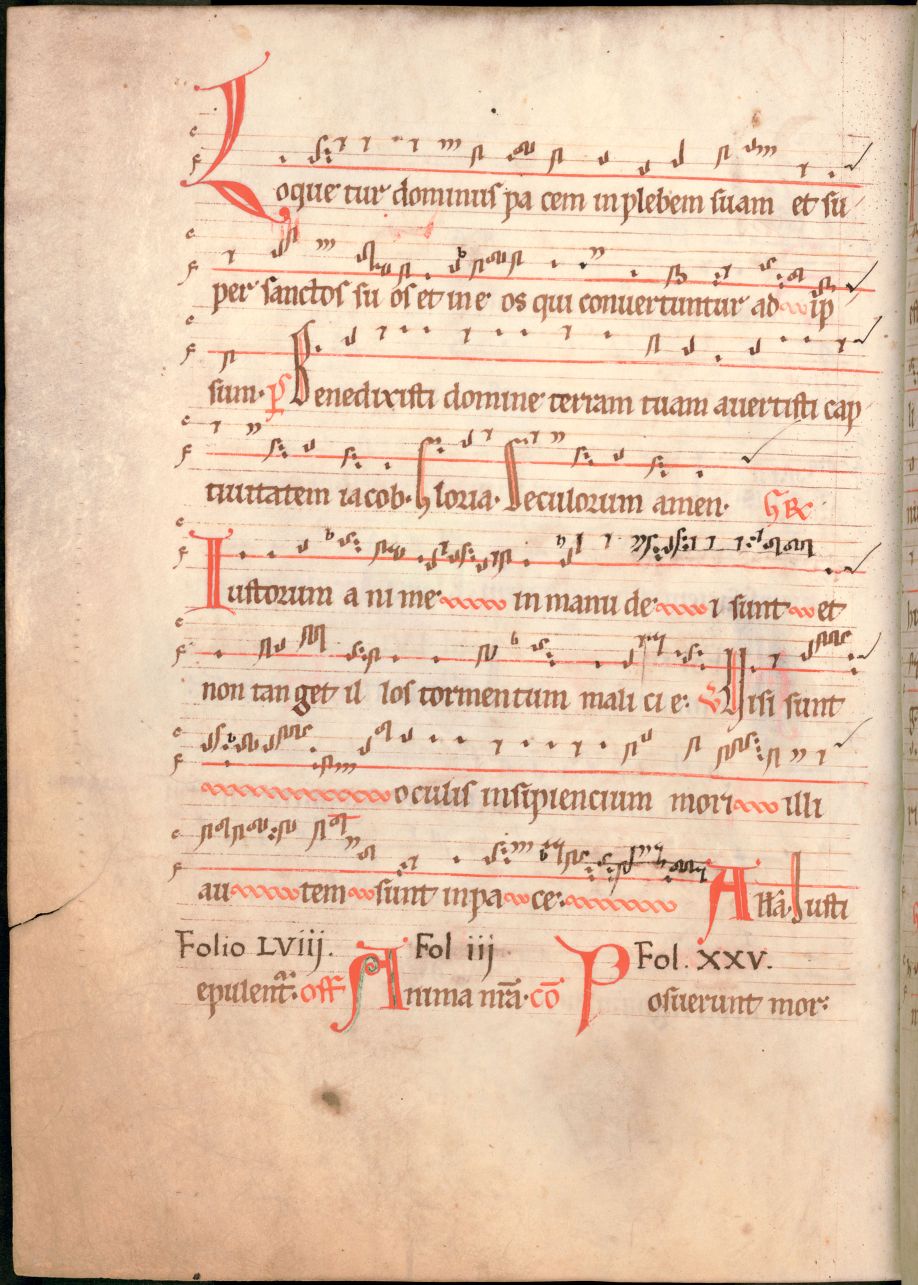 Loque tur dominus pa cem in plebem suam et su
per sanctos su os et in e os qui conuertuntur ad ip
sum. ps Benedixisti domine terram tuam auertisti cap
tiuitatem iacob. Gloria. Seculorum amen. GR
Iustorum a ni me in manu de i sunt et
non tan get il los tormen tum mali ci e: V Uisi sunt
oculis insipiencium mori illi
au tem sunt in pa ce. Allã. Iusti
Folio LVIIj. Fol iij Fol. XXV.
epulent. off Anima nr̃a. cõ Posuerunt mor: